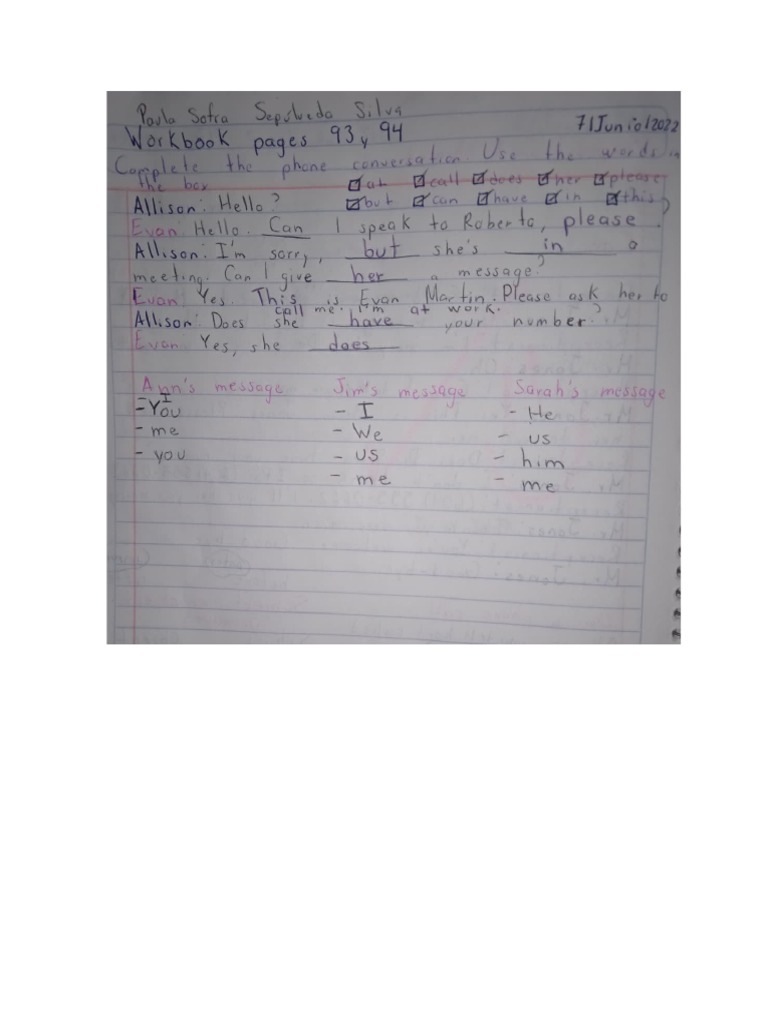 Paula Sofia Sepulveda Silva
7/Junio/2022
Workbook pages 93 y 94
Complete the phone conversation. Use the words in
the box
at call does her please
but can have in this
Allison: Hello?
Evan: Hello. Can I speak to Roberto, please.
Allison: I'm sorry, but she's in a
meeting. Can I give her a message?
Evan: Yes. This is Evan Martin. Please ask her to
call me. I'm at work.
Allison: Does she have your number?
Evan: Yes, she does
Ann's message
- I
- You
- me
- you
Jim's message
- I
- We
- us
- me
Sarah's message
- He
- us
- him
- me